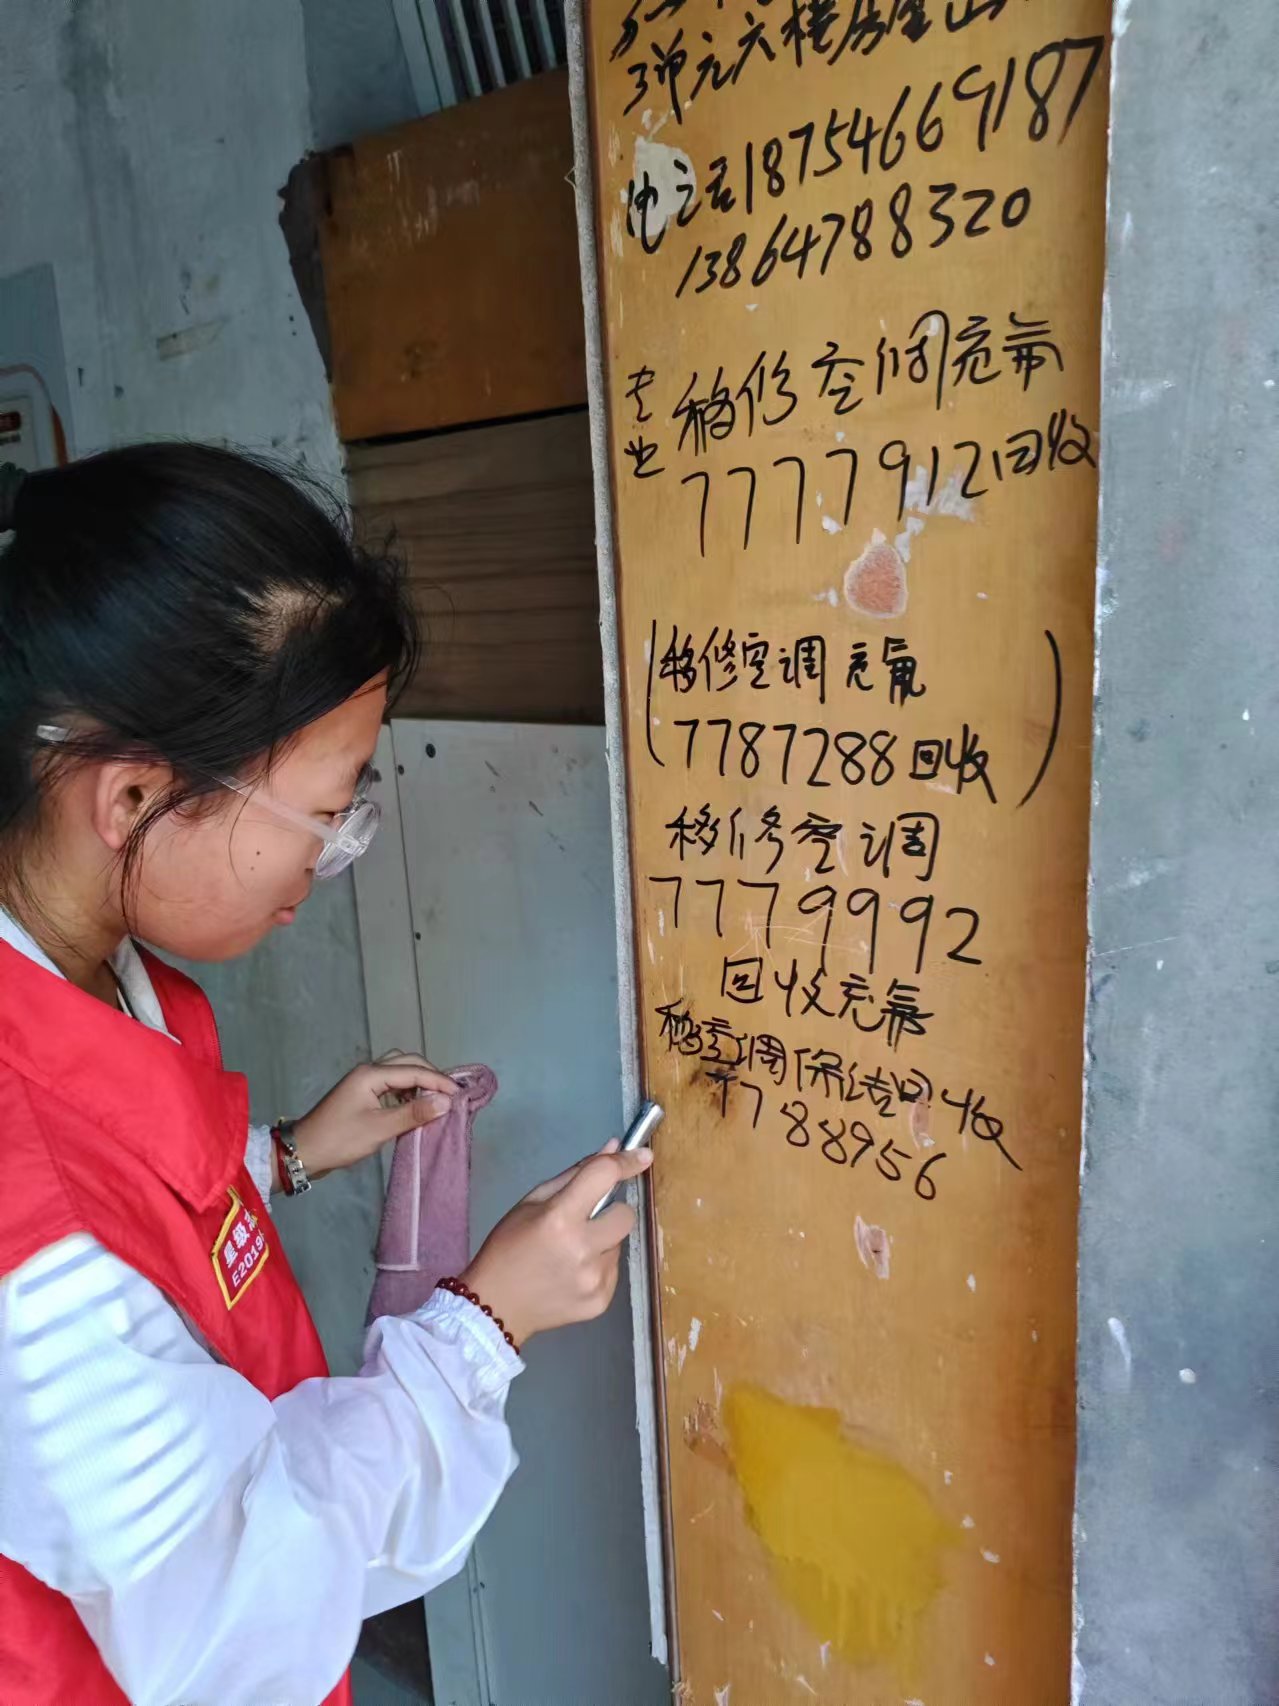 单元六楼房屋出
电话18754669187
13864788320
专业
移修空调充氟
7777912回收
(移修空调充氟
7787288回收)
移修空调
7779992
回收充氟
移空调保洁回收
7788956
星级
E2019